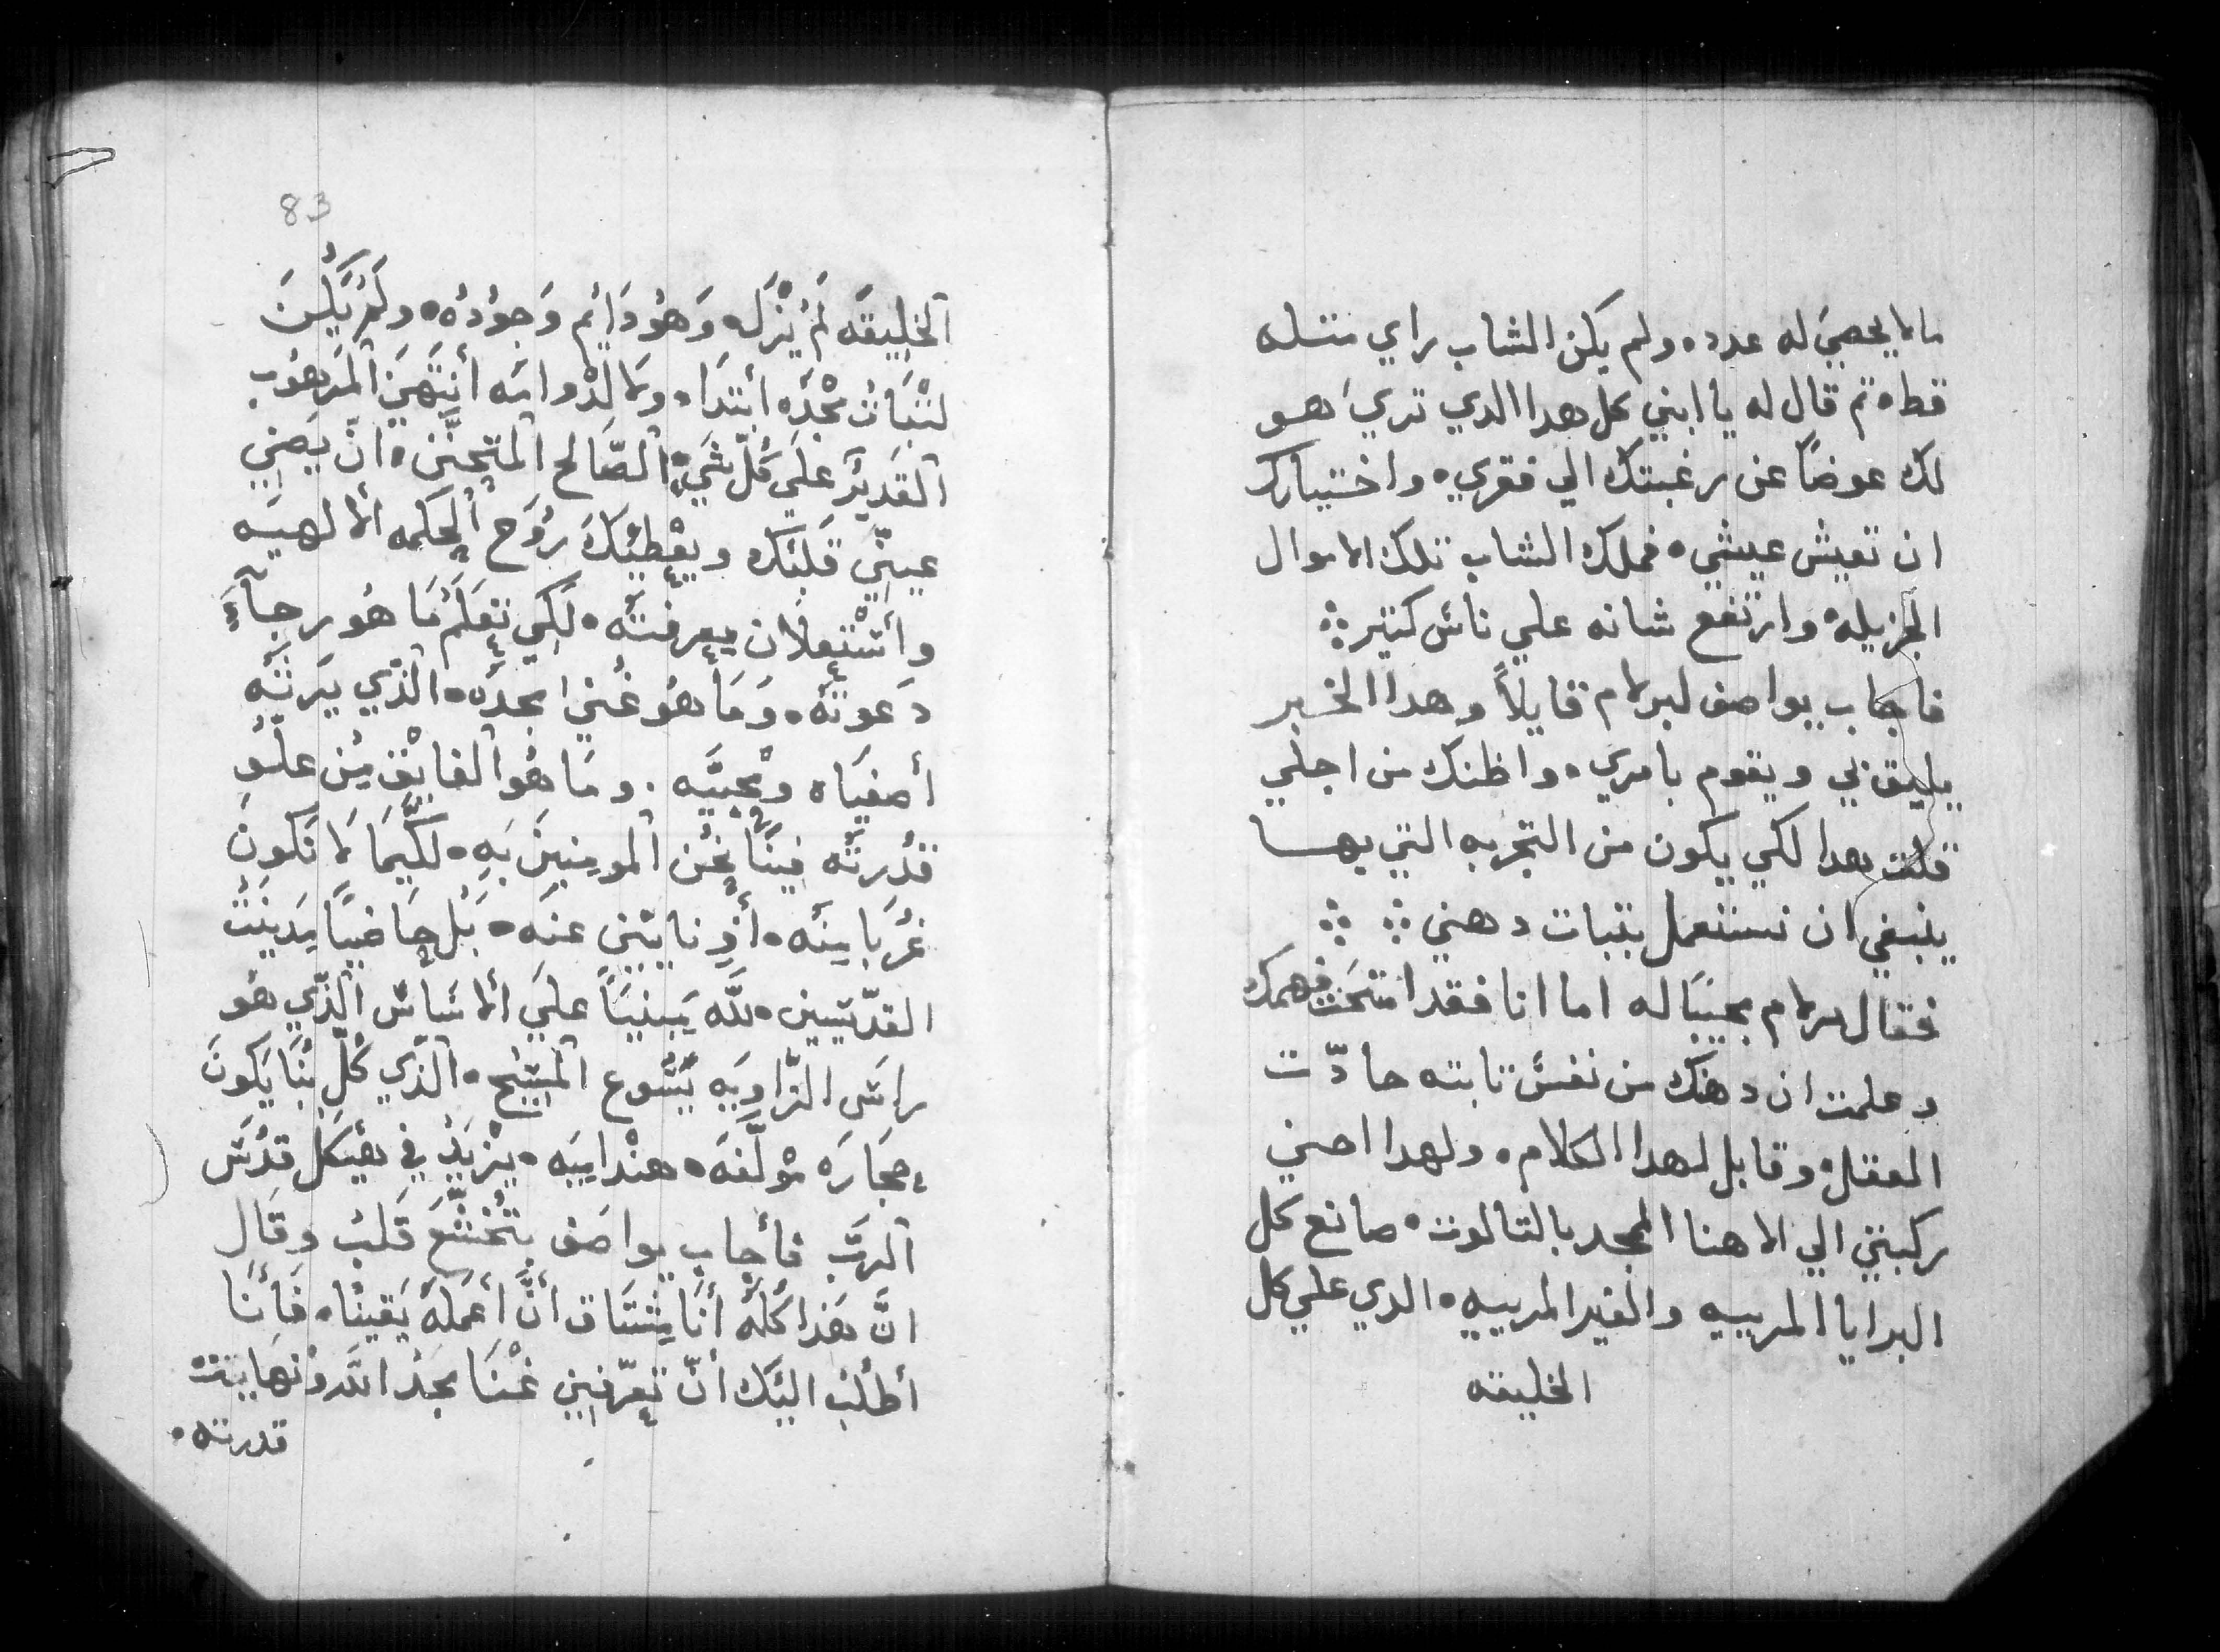 مالا يحصيَ له عدده ولم يكن الشاب راي متله
قط ه تم قال له يا ابني كل هدا الدي تريَ هو
لك عوضاً عن رغبتك الي فقري ه واختيارك
ان تعيش عيشي ه فملك الشاب تلك الاموال
الجزيله ه وارتفع شانه علي ناس كتير ⁘
فاجاب يواصف لبرلام قايلاً وهدا الخبر
يليق بي ويقوم بامري ه واظنك من اجلي
قلت هدا لكي يكون من التجربه التي بها
ينبغي ان تستعمل بتبات دهني ⁘ ⁘
فقال برلام مجيبًا له اما انا فقد امتحنت فهمك
وعلمت ان دهنك من نفسٍ تابته حادّت
العقل ه وقابل لهدا الكلام ه ولهدا احني
ركبتي الي الاهنا الممجد بالتالوت ه صانع كل
البرايا المرييه والغير المرييه ه الدي علي كل
الخليقه
83
ٱلخَلِيقَه لَمْ يُزَله وَهُو دَايُم وَجوُدُه ه ولَمْ يَكُنَ
لتْبَاتْ مجْدَه أبتدَاه ولا لدْوامَه أنتَهيَ ٱلمَرهُوب
ٱلقَديْر علَيَ كُلّ شَيٍ ه ٱلصَّالح ٱلمتحنَّن ه انّ يضِي
عينِّي قَلبْك ويعْطيْكَ رُوَح ٱلحكمه ٱلالهيَه
وأستْعلاَن معرفتَه ه لَكِي تعلَمْ مَا هُو رجآءَ
دَعوتَهُ ه وَمَا هُو غُنيَ مجدَه ه الَّذي يَرتَهُ
أصفيَاه ومُحبيَّه . ومَا هُوا ٱلفايْق مِن علّوِ
قدُرتَه فينَا نحُن المومنِينَ بَهِ ه لكَيمَا لاَ نَكونَ
غرُبَا مِنَه ه أوِ نايتيْن عنَه ه بَل حَاضيًا مَدينَتْ
القدّيسين ه للَّه يَبنيَاً علَيَ ٱلاسَاسْ ٱلذّي هُو
راسَ الزَّاويَه يَسُوع ٱلمسَيْح ه الذّي كُلّ بُنَا يَكونَ
حجَارَه مْولَّفَه ه هندْاميَه ه يزْيَد في هْيكَل قدْس
ٱلربَّ فأجاب يواصَف بتَخشَّع قَلبْ وقَال
انَّ هَذا كُلَهُ أنَا مِشتَاق أنَّ أعَملَهُ يَقينْاه فَأنَا
أطُلْب اليَك انّ تعرّفنِي غْنَا مجَد اللَّه ونْهايتَتْ
قدرته ه